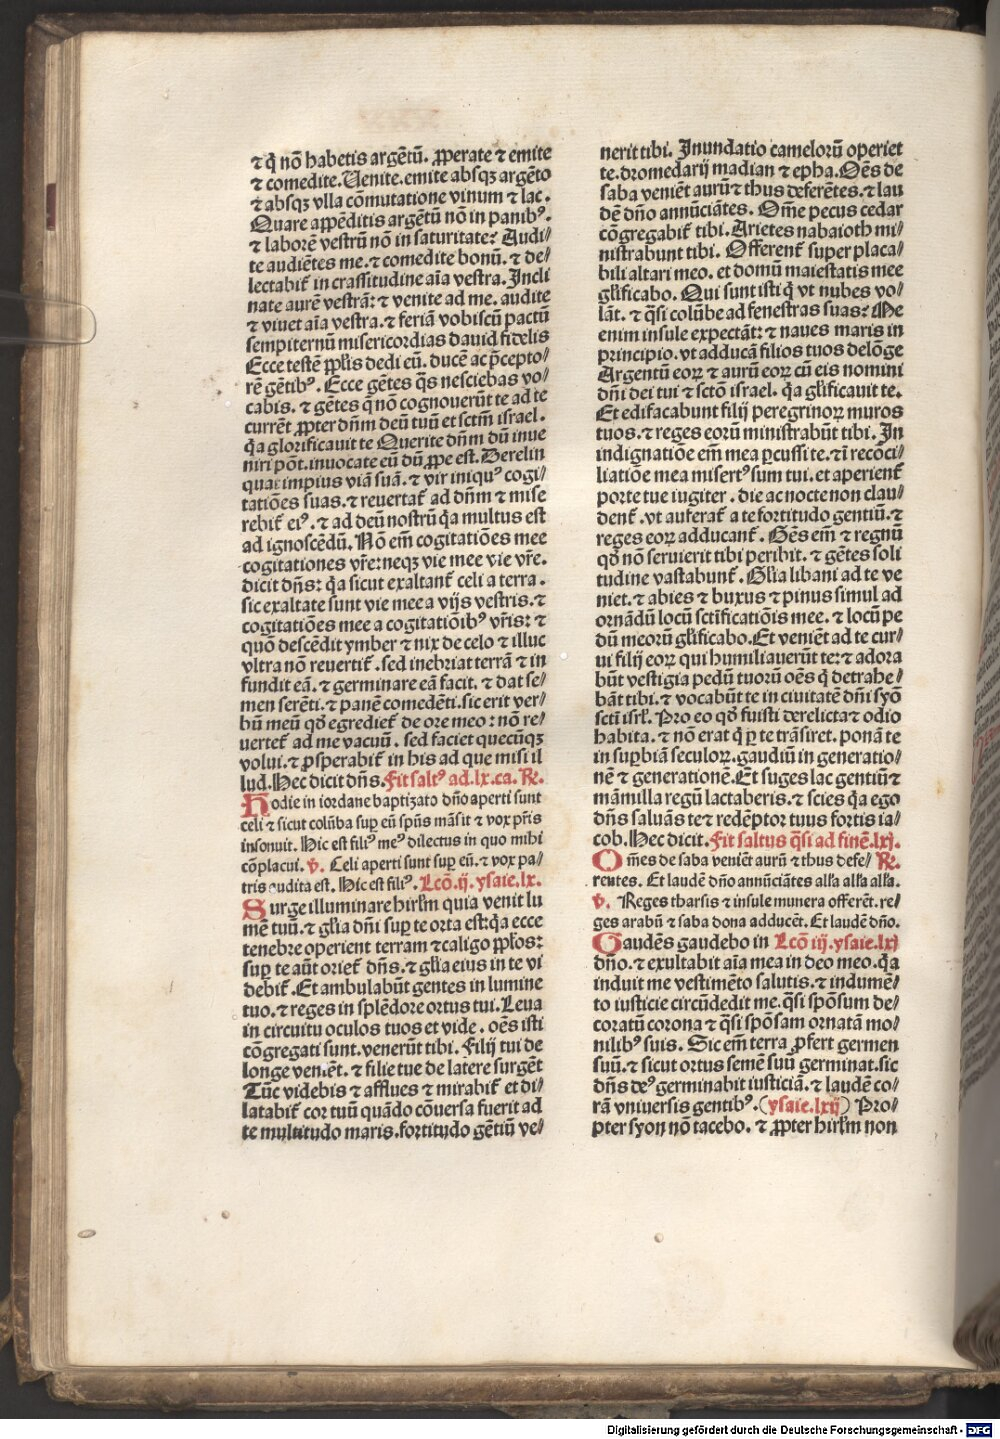 ⁊ q̄ nō habetis argētū. ꝓperate ⁊ emite
⁊ comedite. Venite. emite absqꝫ argēto
⁊ absqꝫ vlla cōmutatione vinum ⁊ lac.
Quare appēditis argētū nō in panibꝰ.
⁊ laborē vestrū nō in saturitate? Audi⸗
te audiētes me. ⁊ comedite bonū. ⁊ de⸗
lectabit̄ in crassitudine aīa vestra. Incli
nate aurē vestrā: ⁊ venite ad me. audite
⁊ viuet aīa vestra. ⁊ feriā vobiscū pactū
sempiternū misericordias dauid fidelis
Ecce testē ppl̄is dedi eū. ducē ac p̄cepto⸗
rē gētibꝰ. Ecce gētes q̄s nesciebas vo⸗
cabis. ⁊ gētes q̄ nō cognouerūt te ad te
currēt ꝓpter dn̄m deū tuū et sctm̄ israel.
q̄a glorificauit te Querite dn̄m dū inue
niri pōt. inuocate eū dū ꝓpe est. Derelin
quat impius viā suā. ⁊ vir iniquꝰ cogi⸗
tatiōes suas. ⁊ reuertat̄ ad dn̄m ⁊ mise
rebit̄ eiꝰ. ⁊ ad deū nostrū q̄a multus est
ad ignoscēdū. Nō em̄ cogitatiōes mee
cogitationes vr̄e: neqꝫ vie mee vie vr̄e.
dicit dn̄s: q̄a sicut exaltant̄ celi a terra.
sic exaltate sunt vie mee a vijs vestris. ⁊
cogitatiōes mee a cogitatiōibꝰ vr̄is: ⁊
quō descēdit ymber ⁊ nix de celo ⁊ illuc
vltra nō reuertit̄. sed inebriat terrā ⁊ in
fundit eā. ⁊ germinare eā facit. ⁊ dat se⸗
men serēti. ⁊ panē comedēti. sic erit ver⸗
bū meū qd̄ egrediet̄ de ore meo: nō re⸗
uertet̄ ad me vacuū. sed faciet quecūqꝫ
volui. ⁊ ꝓsperabit̄ in his ad que misi il
lud. Hec dicit dn̄s. Fit saltꝰ ad .lx. ca. ℟.
Hodie in iordane baptizato dn̄o aperti sunt
celi ⁊ sicut colūba suꝑ eū spūs māsit ⁊ vox pr̄is
insonuit. Hic est filiꝰ meꝰ dilectus in quo mihi
cōplacui. ℣. Celi aperti sunt suꝑ eū. ⁊ vox pa⸗
tris audita est. Hic est filiꝰ. Lcō. ij. ysaie. lx.
Surge illuminare hirl̄m quia venit lu
mē tuū. ⁊ gl̄ia dn̄i suꝑ te orta est: q̄a ecce
tenebre operient terram ⁊ caligo ppl̄os:
suꝑ te aūt oriet̄ dn̄s. ⁊ gl̄ia eius in te vi
debit̄. Et ambulabūt gentes in lumine
tuo. ⁊ reges in splēdore ortus tui. Leua
in circuitu oculos tuos et vide. oēs isti
cōgregati sunt. venerūt tibi. Filij tui de
longe veniēt. ⁊ filie tue de latere surgēt
Tūc videbis ⁊ afflues ⁊ mirabit̄ et di⸗
latabit̄ cor tuū quādo cōuersa fuerit ad
te multitudo maris. fortitudo gētiū ve⸗
nerit tibi. Inundatio camelorū operiet
te. dromedarij madian ⁊ epha. Oēs de
saba veniēt aurū ⁊ thus deferētes. ⁊ lau
dē dn̄o annūciātes. Om̄e pecus cedar
cōgregabit̄ tibi. Arietes nabaioth mi⸗
nistrabunt tibi. Offerent̄ super placa⸗
bili altari meo. et domū maiestatis mee
gl̄ificabo. Qui sunt isti q̄ vt nubes vo⸗
lāt. ⁊ q̄si colūbe ad fenestras suas? Me
enim insule expectāt: ⁊ naues maris in
principio. vt adducā filios tuos delōge
Argentū eoꝝ ⁊ aurū eoꝝ cū eis nomini
dn̄i dei tui ⁊ sctō israel. q̄a gl̄ificauit te.
Et edifacabunt filij peregrinoꝝ muros
tuos. ⁊ reges eorū ministrabūt tibi. In
indignatiōe em̄ mea ꝑcussi te. ⁊ī recōci⸗
liatiōe mea misertꝰ sum tui. et aperient̄
porte tue iugiter. die ac nocte non clau⸗
dent̄. vt auferat̄ a te fortitudo gentiū. ⁊
reges eoꝝ adducant̄. Gēs em̄ ⁊ regnū
qd̄ nō seruierit tibi peribit. ⁊ gētes soli
tudine vastabunt̄. Gl̄ia libani ad te ve
niet. ⁊ abies ⁊ buxus ⁊ pinus simul ad
ornādū locū sctīficatiōis mee. ⁊ locū pe
dū meorū gl̄ificabo. Et veniēt ad te cur⸗
ui filij eoꝝ qui humiliauerūt te: ⁊ adora
būt vestigia pedū tuorū oēs q̄ detrahe⸗
bāt tibi. ⁊ vocabūt te in ciuitatē dn̄i syō
sctī isrl̄. Pro eo qd̄ fuisti derelicta ⁊ odio
habita. ⁊ nō erat q̄ ꝑ te trāsiret. ponā te
in suꝑbiā seculoꝝ. gaudiū in generatio⸗
nē ⁊ generationē. Et suges lac gentiū ⁊
māmilla regū lactaberis. ⁊ scies q̄a ego
dn̄s saluās te ⁊ redēptor tuus fortis ia⸗
cob. Hec dicit. Fit saltus q̄si ad finē. lxj.
Om̄es de saba veniēt aurū ⁊ thus defe⸗ ℟.
rentes. Et laudē dn̄o annūciātes all̄a all̄a all̄a.
℣. Reges tharsis ⁊ insule munera offerēt. re⸗
ges arabū ⁊ saba dona adducēt. Et laudē dn̄o.
Gaudēs gaudebo in Lcō iij. ysaie. lxj
dn̄o. ⁊ exultabit aīa mea in deo meo. q̄a
induit me vestimēto salutis. ⁊ indumē⸗
to iusticie circūdedit me. q̄si spōsum de⸗
coratū corona ⁊ q̄si spōsam ornatā mo⸗
nilibꝰ suis. Sic em̄ terra ꝓfert germen
suū. ⁊ sicut ortus semē suū germinat. sic
dn̄s deꝰ germinabit iusticiā. ⁊ laudē co⸗
rā vniuersis gentibꝰ. (ysaie. lxij) Pro⸗
pter syon nō tacebo. ⁊ ꝓpter hirl̄m non
Digitalisierung gefördert durch die Deutsche Forschungsgemeinschaft - DFG